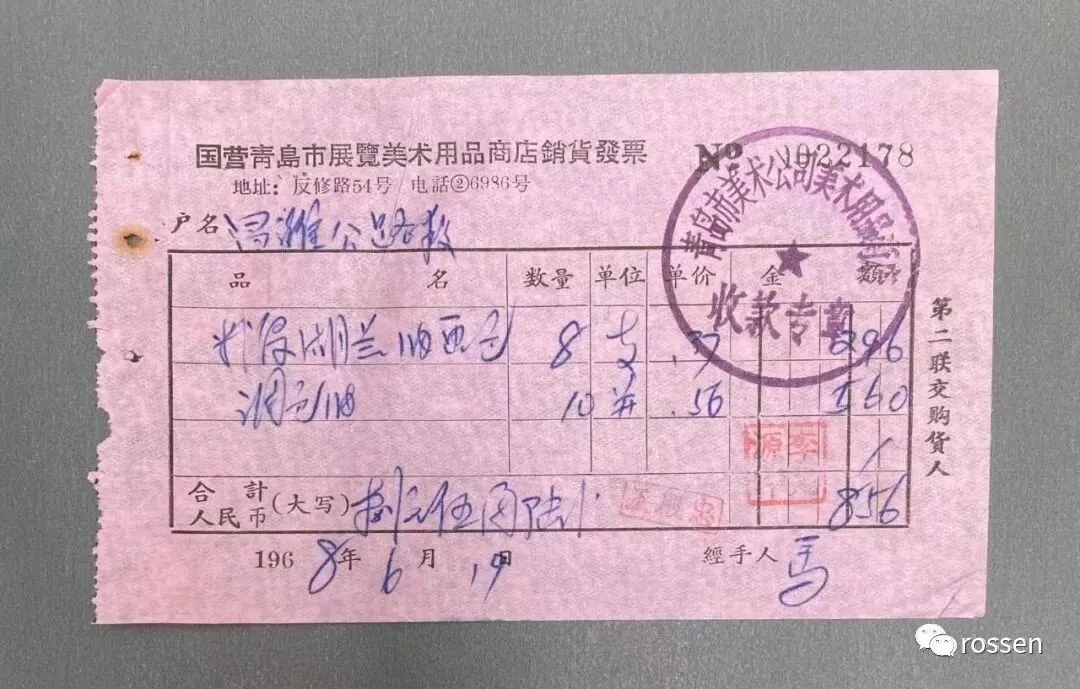 国营青島市展覽美术用品商店銷貨發票
No 1022178
地址：反修路54号 电話②6986号
户名 昌潍公路
青岛市美术公司美术用品
收款专章
品名 数量 单位 单价 金額
湖兰油画色 8 支 .37 296
调色油 10 .56 560
源 李
合計 人民币 (大写) 捌元伍角陆 856
1968年6月19日 經手人 馬
第二联交购货人
rossen